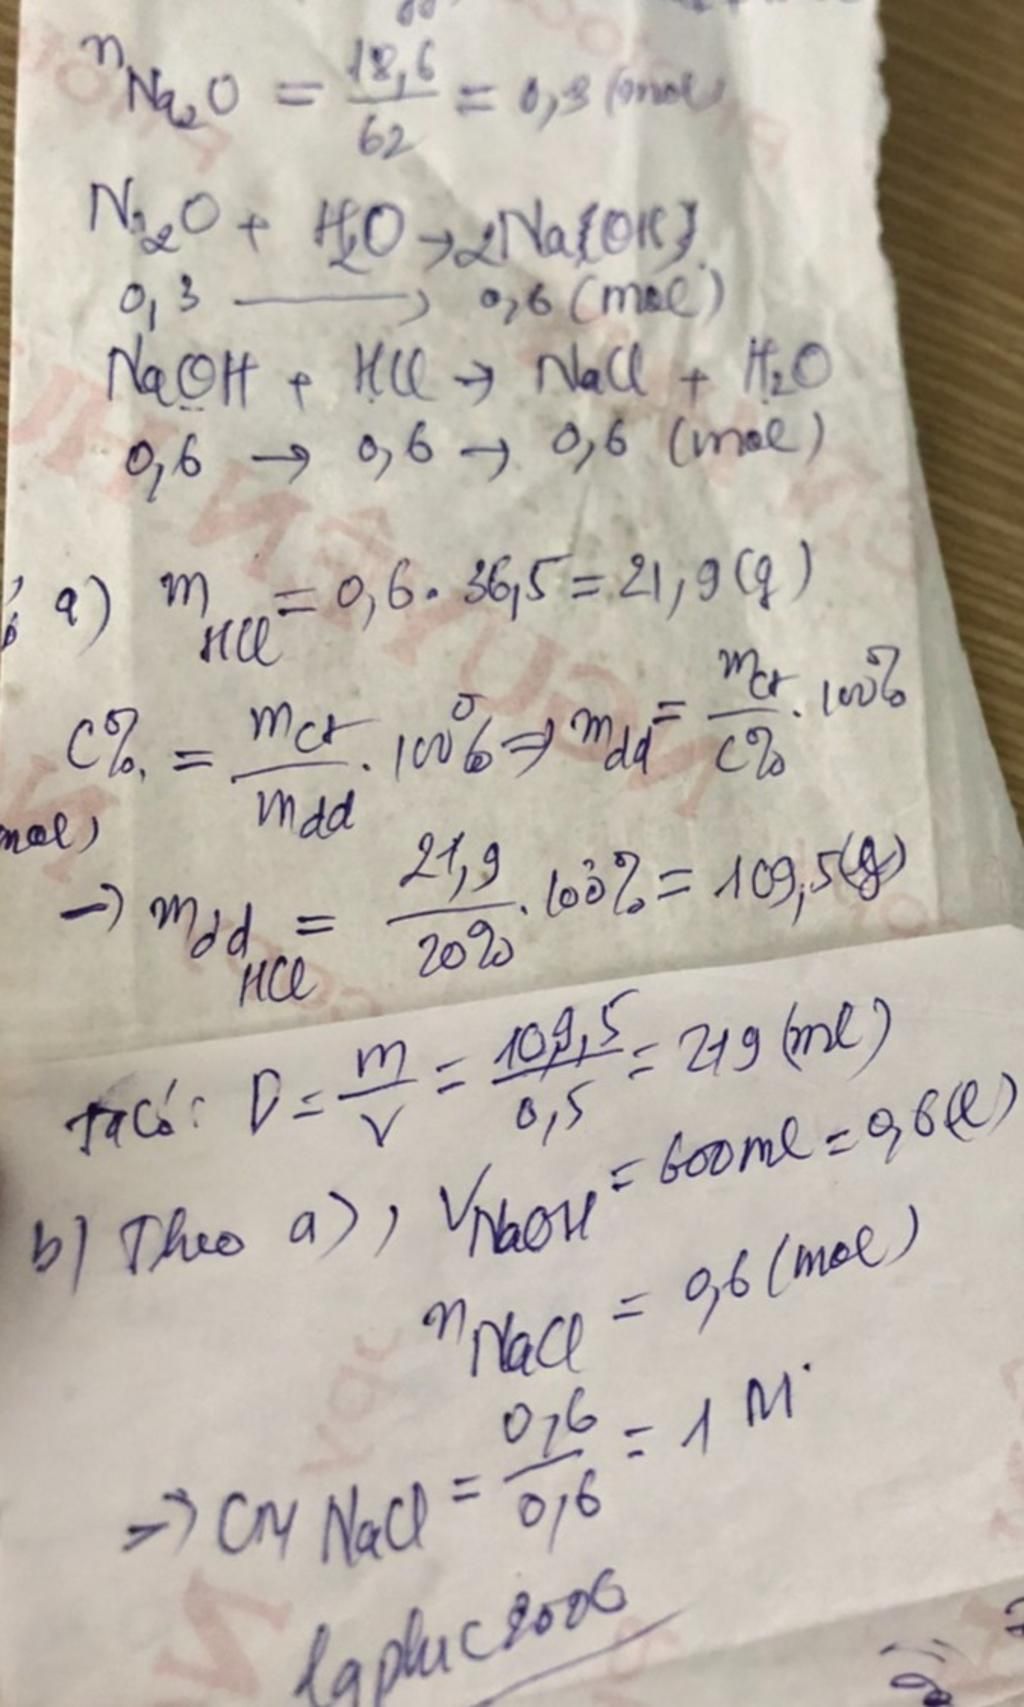 nNa₂O = 18,6/62 = 0,3 (mol)
Na₂O + H₂O → 2Na(OH)
0,3 → 0,6 (mol)
NaOH + HCl → NaCl + H₂O
0,6 → 0,6 → 0,6 (mol)
a) mHCl = 0,6 . 36,5 = 21,9 (g)
C% = mct/mdd . 100% => mdd = mct/C% . 100%
mol)
→ mdd HCl = 21,9/20% . 100% = 109,5 (g)
Ta có: D = m/V = 109,5/0,5 = 219 (ml)
b) Theo a), VNaOH = 600ml = 0,6 (l)
nNaCl = 0,6 (mol)
=> CM NaCl = 0,6/0,6 = 1 M.